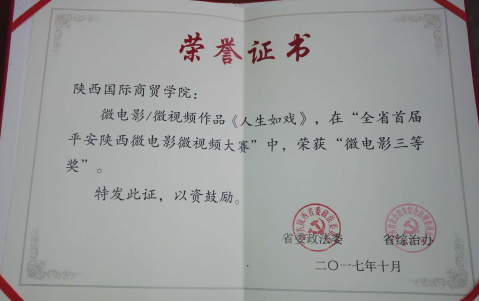 荣誉证书
陕西国际商贸学院：
微电影/微视频作品《人生如戏》，在“全省首届
平安陕西微电影微视频大赛”中，荣获“微电影三等
奖”。
特发此证，以资鼓励。
省委政法委 省综治办
二〇一七年十月